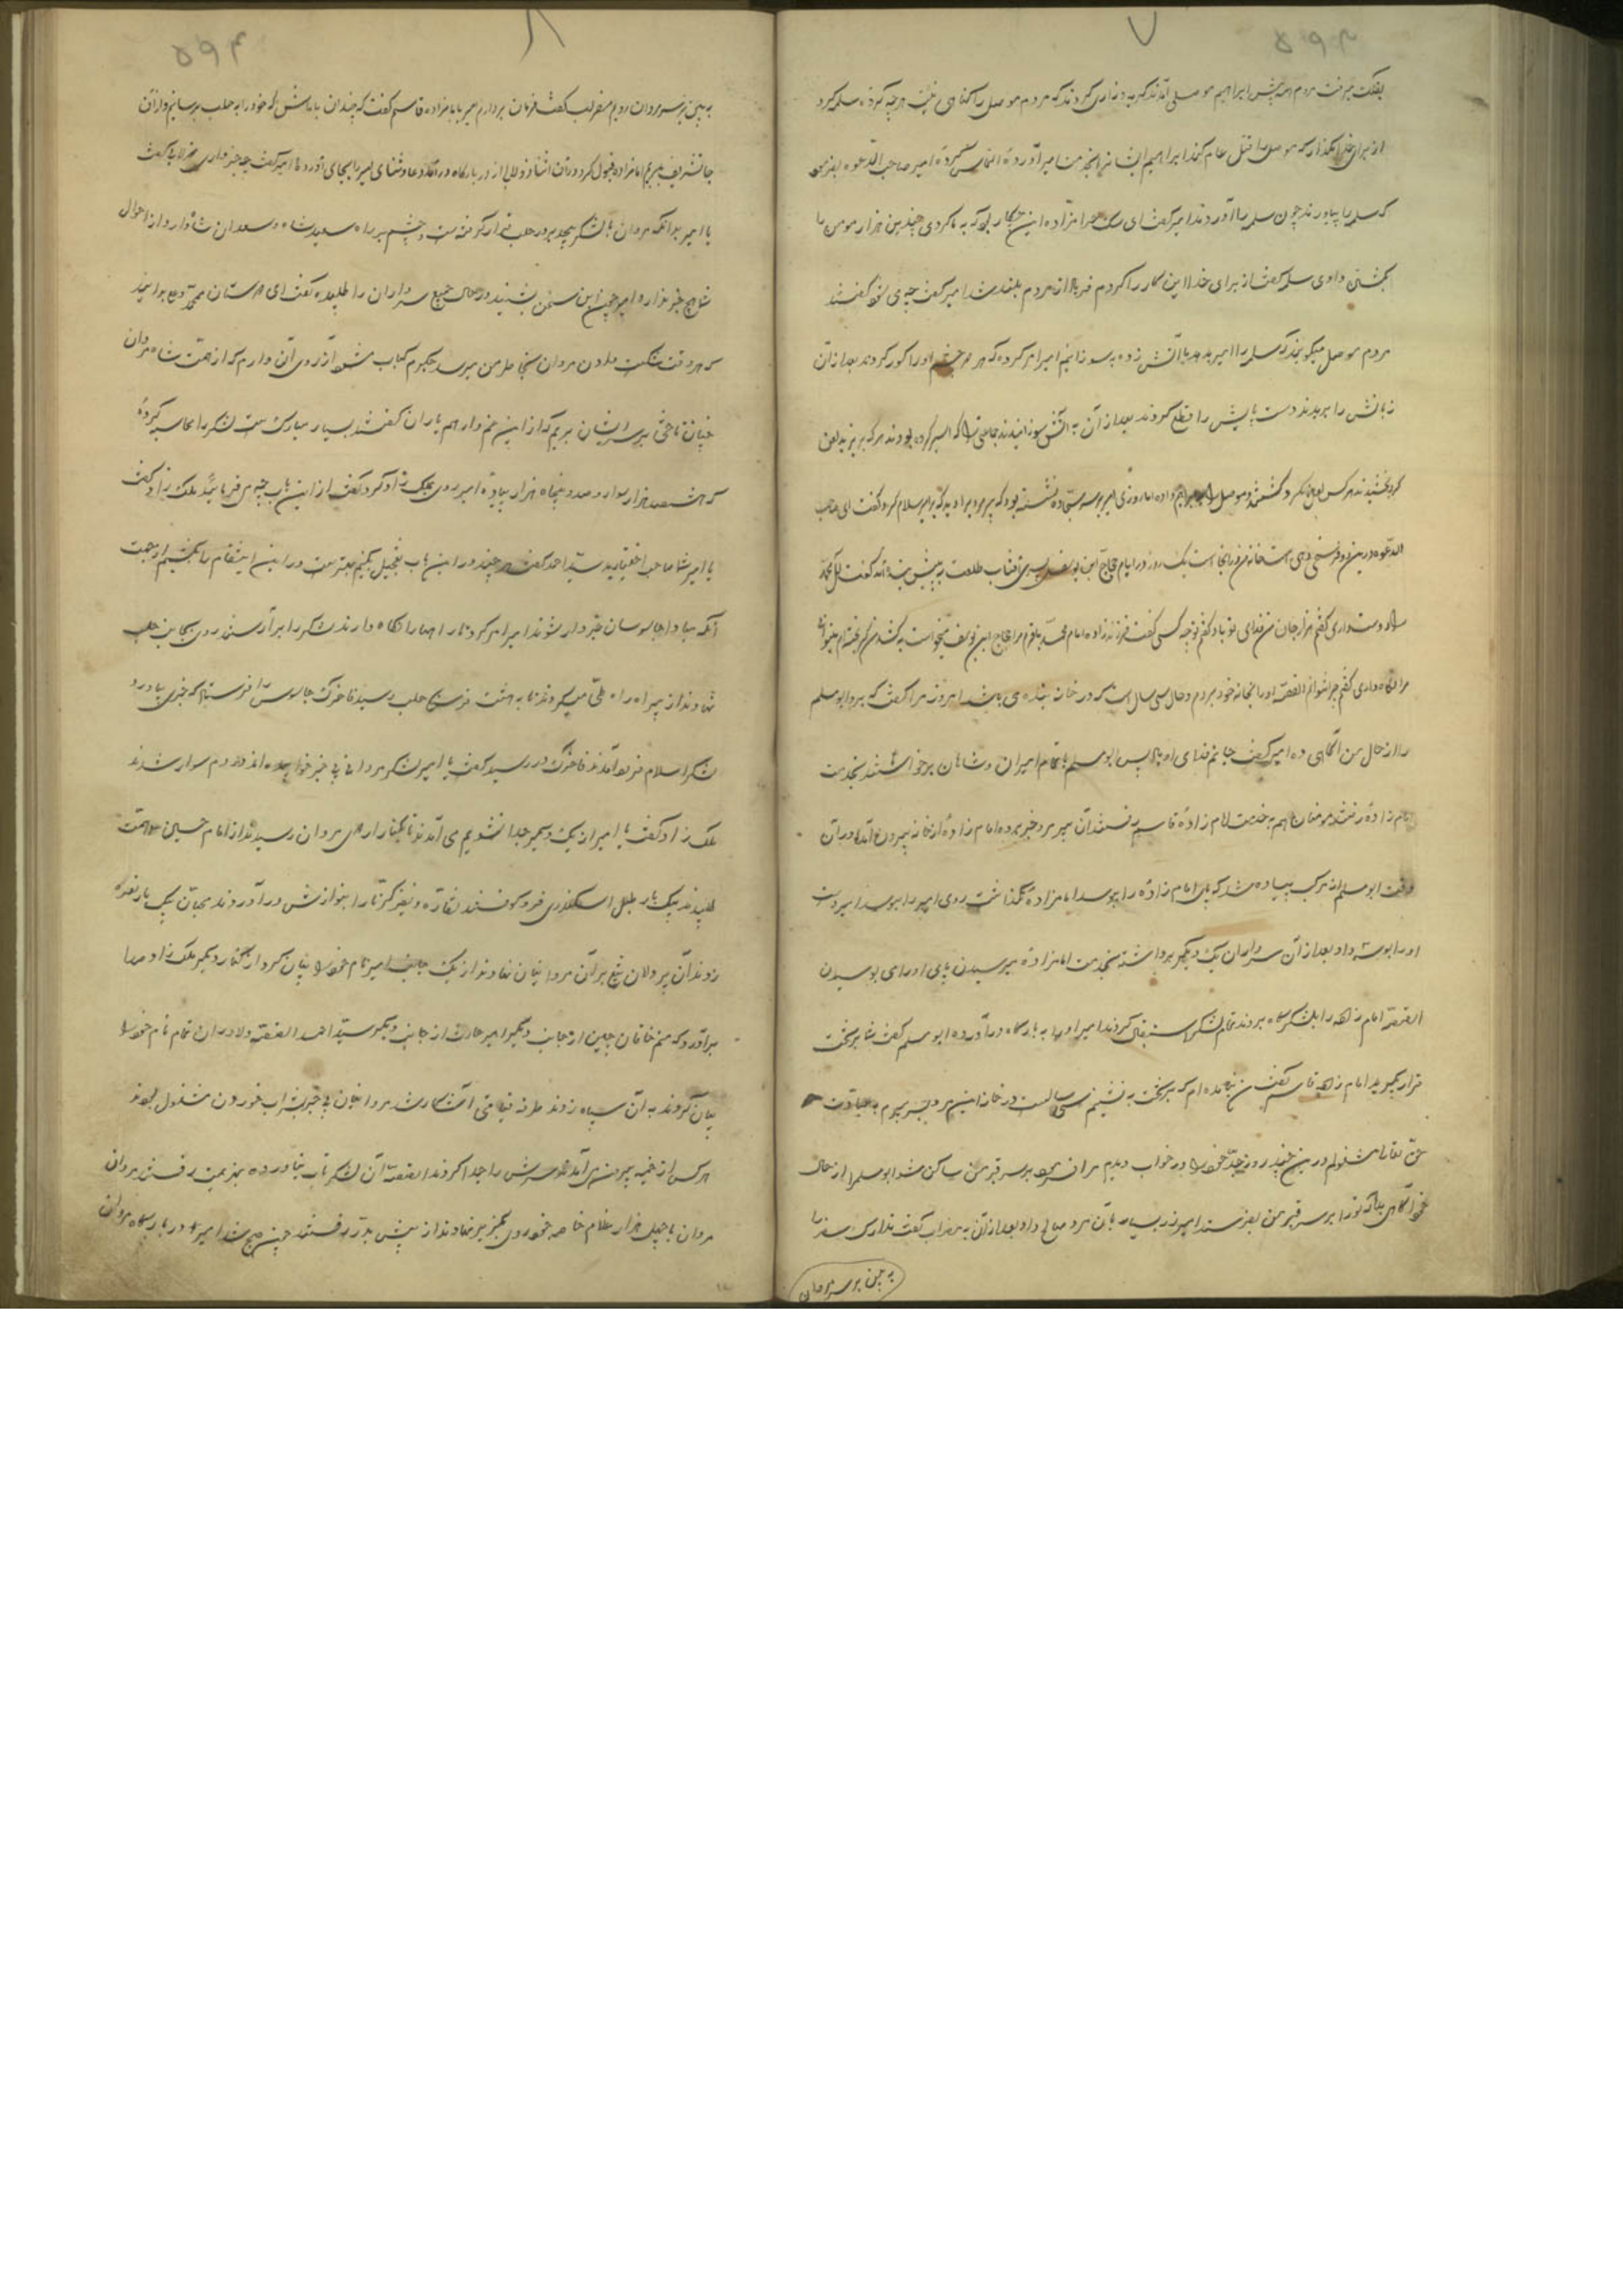 ۷
بفلک میرفت مردم همه پیش ابراهیم موصلی آمدند گریه و زاری کردند که مردم موصل را گناهی نیست هر چه کرده سلمه کرد
از برای خدا مگذار که موصل را قتل عام کنند ابراهیم ایشانرا بخدمت امیر آورده التماس کرده امیر صاحب الدعوه بفرمود
که سلمه را بیاورند چون سلمه را آوردند امیر گفت ای سگ حرامزاده این چکار بود که به ما کردی چندین هزار مومن را
بکشتن دادی سلمه گفت از برای خدا این کار را کردم فریاد از مردم بلند شد امیر گفت چه می گفتند
مردم موصل میگویند که سلمه را امیر بدهد با آتش زده بسوزانیم امیر امر کرده که هر دو چشم او را کور کردند بعد از آن
زبانش را بریدند دست پایش را قطع کردند بعد از آن به آتش سوزانیدند جماعتی را که اسیر کرده بودند هر که بر یزید لعن
کرد بخشیدند هر کس لعن نکرد کشتند و موصل را به ابراهیم داده اما روزی امیر بر سر سجاده نشسته بود که پیر مردی برابر سلام کرد و گفت ای صاحب
الدعوه درین دو فرسخی دهی است خانه من در آنجا است یک روز در ایام حجاج ابن یوسف پسری آفتاب طلعت به پیش بنده آمد گفت آل محمد
را دوست داری گفتم هزار جان من فدای تو باد گفتم تو چه کسی گفت فرزند زاده امام محمد باقرم مرا حجاج ابن یوسف میخواست بکشد من گریخته ام میتوانی
مرا نگاه داری گفتم چرا نتوانم القصه او را بخانه خود بردم و حال سی سال است که در خانه بنده می باشد امروز مرا گفت که برو ابو مسلم
را از حال من آگاهی ده امیر گفت جانم فدای او باد پس ابو مسلم با تمام امیران و شاهان برخواستند بخدمت
امام زاده رفتند مومنان همه به خدمت امام زاده قاسم رفتند آن پیر مرد خبر برده امام زاده از خانه بیرون آمد در آن
وقت ابو مسلم از مرکب پیاده شد که پای امام زاده را ببوسد امامزاده نگذاشت روی امیر را ببوسد امیر دست
او را بوسه داد بعد از آن سرداران یک دیگر برداشته بخدمت امامزاده میرسیدند پای او را می بوسیدند
القصه امام زاده را بلشکرگاه بردند تمام لشکر استقبال کردند امیر او را به بارگاه در آورده ابو مسلم گفت شما بر تخت
قرار گیرید امام زاده قاسم گفت من نیامده ام که بر تخت به نشینم سی سالست در خانه این مرد بسر میبرم به عبادت
حق تعالی مشغولم درین چند روز جد خود را در خواب دیدم مرا فرمود بر سر قبر من ساکن شو ابو مسلم را از حال
خود آگاهی بده که تو را بر سر قبر من بفرستد امیر زر بسیار بآن مرد صالح داد بعد از آن به مضراب گفت تدارک سفر را
به بین بر سر مردان
۸
به بین بر سر مردان رویم مضراب گفت فرمان بردارم امیر با امامزاده قاسم گفت که چندان با ما باش که خود را به حلب برسانیم و از آن
جا تشریف ببرید امامزاده قبول کرد در آن اثنا ذولابی از در بارگاه در آمد دعا و ثنای امیر را بجای آورد امیر گفت چه خبر داری ذولابی گفت
یا امیر بدانکه مروان با لشکر بیحد بر در حلب قرار گرفته است و چشم بر راه سعید شاه و سعدان شاه دارد و از احوال
شما هیچ خبر ندارد امیر چون این سخن بشنید در حال جمیع سرداران را طلبید گفت ای دوستان محمد و علی بدانید
که هر وقت شکست دادن مروان بخاطر من میرسد جگرم کباب میشود آرزوی آن دارم که از همت شاه مردان
چنان تاختی بر سر ایشان بریم که از این غم وارهم یاران گفتند بسیار مبارک ست لشکر را محاسبه کرد
که هشتصد هزار سوار و صد و پنجاه هزار پیاده امیر روی بملک زاد کرد گفت از این باب چه می فرمائید ملک زاد گفت
یا امیر شما صاحب اختیارید سید احمد گفت هر چند در این باب تعجیل بکنیم بهتر ست و در این انتقام را بکشیم از جهت
آنکه مبادا جاسوسان خبر دار شوند امیر امر کرد تا راهها را نگاه دارند لشکر را بر آراستند روی بجانب حلب
نهادند از بیراه راه طی میکردند تا به هشت فرسخ حلب رسید فاخرک جاسوس را فرستاد که خبری بیاورد
لشکر اسلام فرود آمدند فاخرک در رسید گفت یا امیر لشکر مروانی بی خبر خوابیده اند در دم سوار شدند
ملک زاد گفت یا امیر از یک دیگر جدا نشویم می آمدند تا بکنار اردوی مروان رسیدند از امام حسین همت
طلبیدند یک بار طبل اسکندری فرو کوفتند نقاره و نفیر کرنا را بنوازش در آوردند محبان یک بار نعره
زدند آن پر دلان تیغ بر آن مروانیان نهادند از یک جانب امیر نام خود را بیان کرد از کنار دیگر ملک زاد صدا
برآورد که منم خاقان چین از جانب دیگر امیر حارث از جانب دیگر سید احمد القصه دلاوران تمام نام خود را
بیان کردند به آن سپاه زدند طرفه قیامتی آشکار شد مروانیان بی خبر بشراب خوردن مشغول بودند
هر کس از خیمه بیرون می آمد سرش را جدا کردند القصه آن لشکر تاب نیاورده بهزیمت رفتند مروان
مروان با چهل هزار غلام خاصه خود روی بگریز نهادند از پیش بدر رفتند چون صبح شد امیر در بارگاه مروان